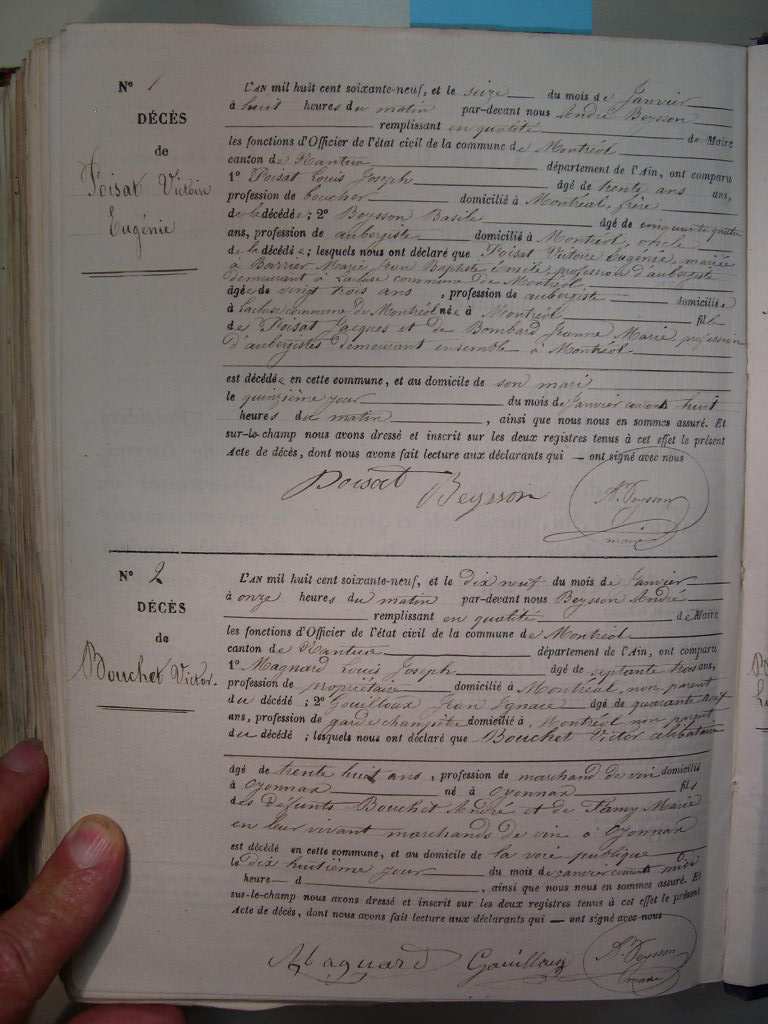 N° 1
DÉCÈS
de
Poisat Victoire
Eugénie
L'AN mil huit cent soixante-neuf, et le seize du mois de Janvier
à huit heures du matin par-devant nous André Beysson
remplissant en qualité de Maire
les fonctions d'Officier de l'état civil de la commune de Montréal
canton de Nantua département de l'Ain, ont comparu
1° Poisat Louis Joseph âgé de trente ans ans,
profession de boucher domicilié à Montréal, frère
de la décédée; 2° Beysson Basile âgé de cinquante quatre
ans, profession de aubergiste domicilié à Montréal, oncle
de la décédée; lesquels nous ont déclaré que Poisat Victoire Eugénie, mariée
à Barrier Marie Jean Baptiste profession d'aubergiste
demeurant à Lacluse commune de Montréal
âgée de vingt trois ans, profession de aubergiste domiciliée
à Lacluse commune de Montréal née à Montréal fille
de Poisat Jacques et de Bombard Jeanne Marie profession
d'aubergistes demeurant ensemble à Montréal
est décédée en cette commune, et au domicile de son mari
le quinzième jour du mois de Janvier courant huit
heures du matin, ainsi que nous nous en sommes assuré. Et
sur-le-champ nous avons dressé et inscrit sur les deux registres tenus à cet effet le présent
Acte de décès, dont nous avons fait lecture aux déclarants qui — ont signé avec nous
Poisat Beysson A. Beysson
maire
N° 2
DÉCÈS
de
Bouchet Victor.
L'AN mil huit cent soixante-neuf, et le dix neuf du mois de Janvier
à onze heures du matin par-devant nous Beysson André
remplissant en qualité de Maire
les fonctions d'Officier de l'état civil de la commune de Montréal
canton de Nantua département de l'Ain, ont comparu
1° Magnard Louis Joseph âgé de septante trois ans,
profession de propriétaire domicilié à Montréal non parent
du décédé; 2° Gouilloux Jean Ignace âgé de quarante neuf
ans, profession de garde champêtre domicilié à Montréal non parent
du décédé; lesquels nous ont déclaré que Bouchet Victor célibataire
âgé de trente huit ans, profession de marchand de vin domicilié
à Oyonnax né à Oyonnax fils
des défunts Bouchet André et de Famy Marie
en leur vivant marchands de vin à Oyonnax
est décédé en cette commune, et au domicile de la voie publique
le dix huitième jour du mois de Janvier courant à midi
heure d, ainsi que nous nous en sommes assuré. Et
sur-le-champ nous avons dressé et inscrit sur les deux registres tenus à cet effet le présent
Acte de décès, dont nous avons fait lecture aux déclarants qui — ont signé avec nous
Magnard Gouilloux A. Beysson
maire